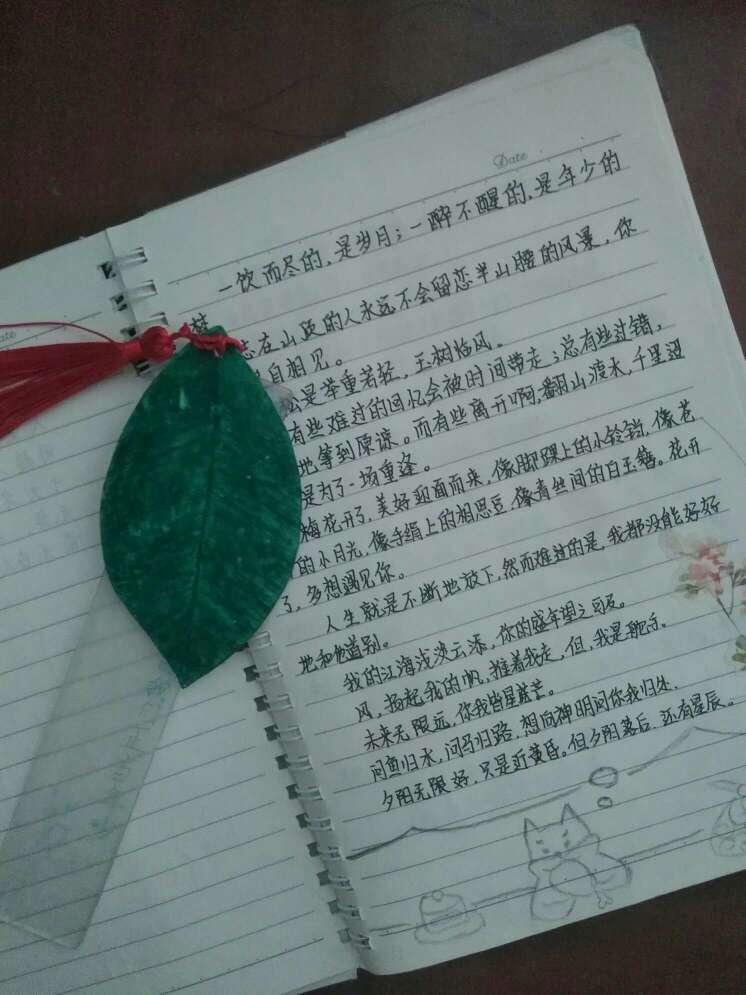 Date
一饮而尽的，是岁月；一醉不醒的，是年少的
梦
志在山顶的人永远不会留恋半山腰的风景，你
自相见。
是举重若轻，玉树临风。
有些难过的回忆会被时间带走；总有些过错，
地等到原谅。而有些离开啊，翻山渡水，千里迢
是为了一场重逢。
梅花开了，美好迎面而来，像脚踝上的小铃铛，像苍
的小月光，像手绢上的相思豆，像青丝间的白玉簪。花开
了，多想遇见你。
人生就是不断地放下，然而难过的是，我都没能好好
地和他道别。
我的江海浅淡云添，你的盛年望之可及。
风，扬起我的帆，推着我走，但，我是舵手。
未来无限远，你我皆星芒。
问鱼归水，问马归路，想向神明问你我归处。
夕阳无限好，只是近黄昏。但夕阳落后，还有星辰。